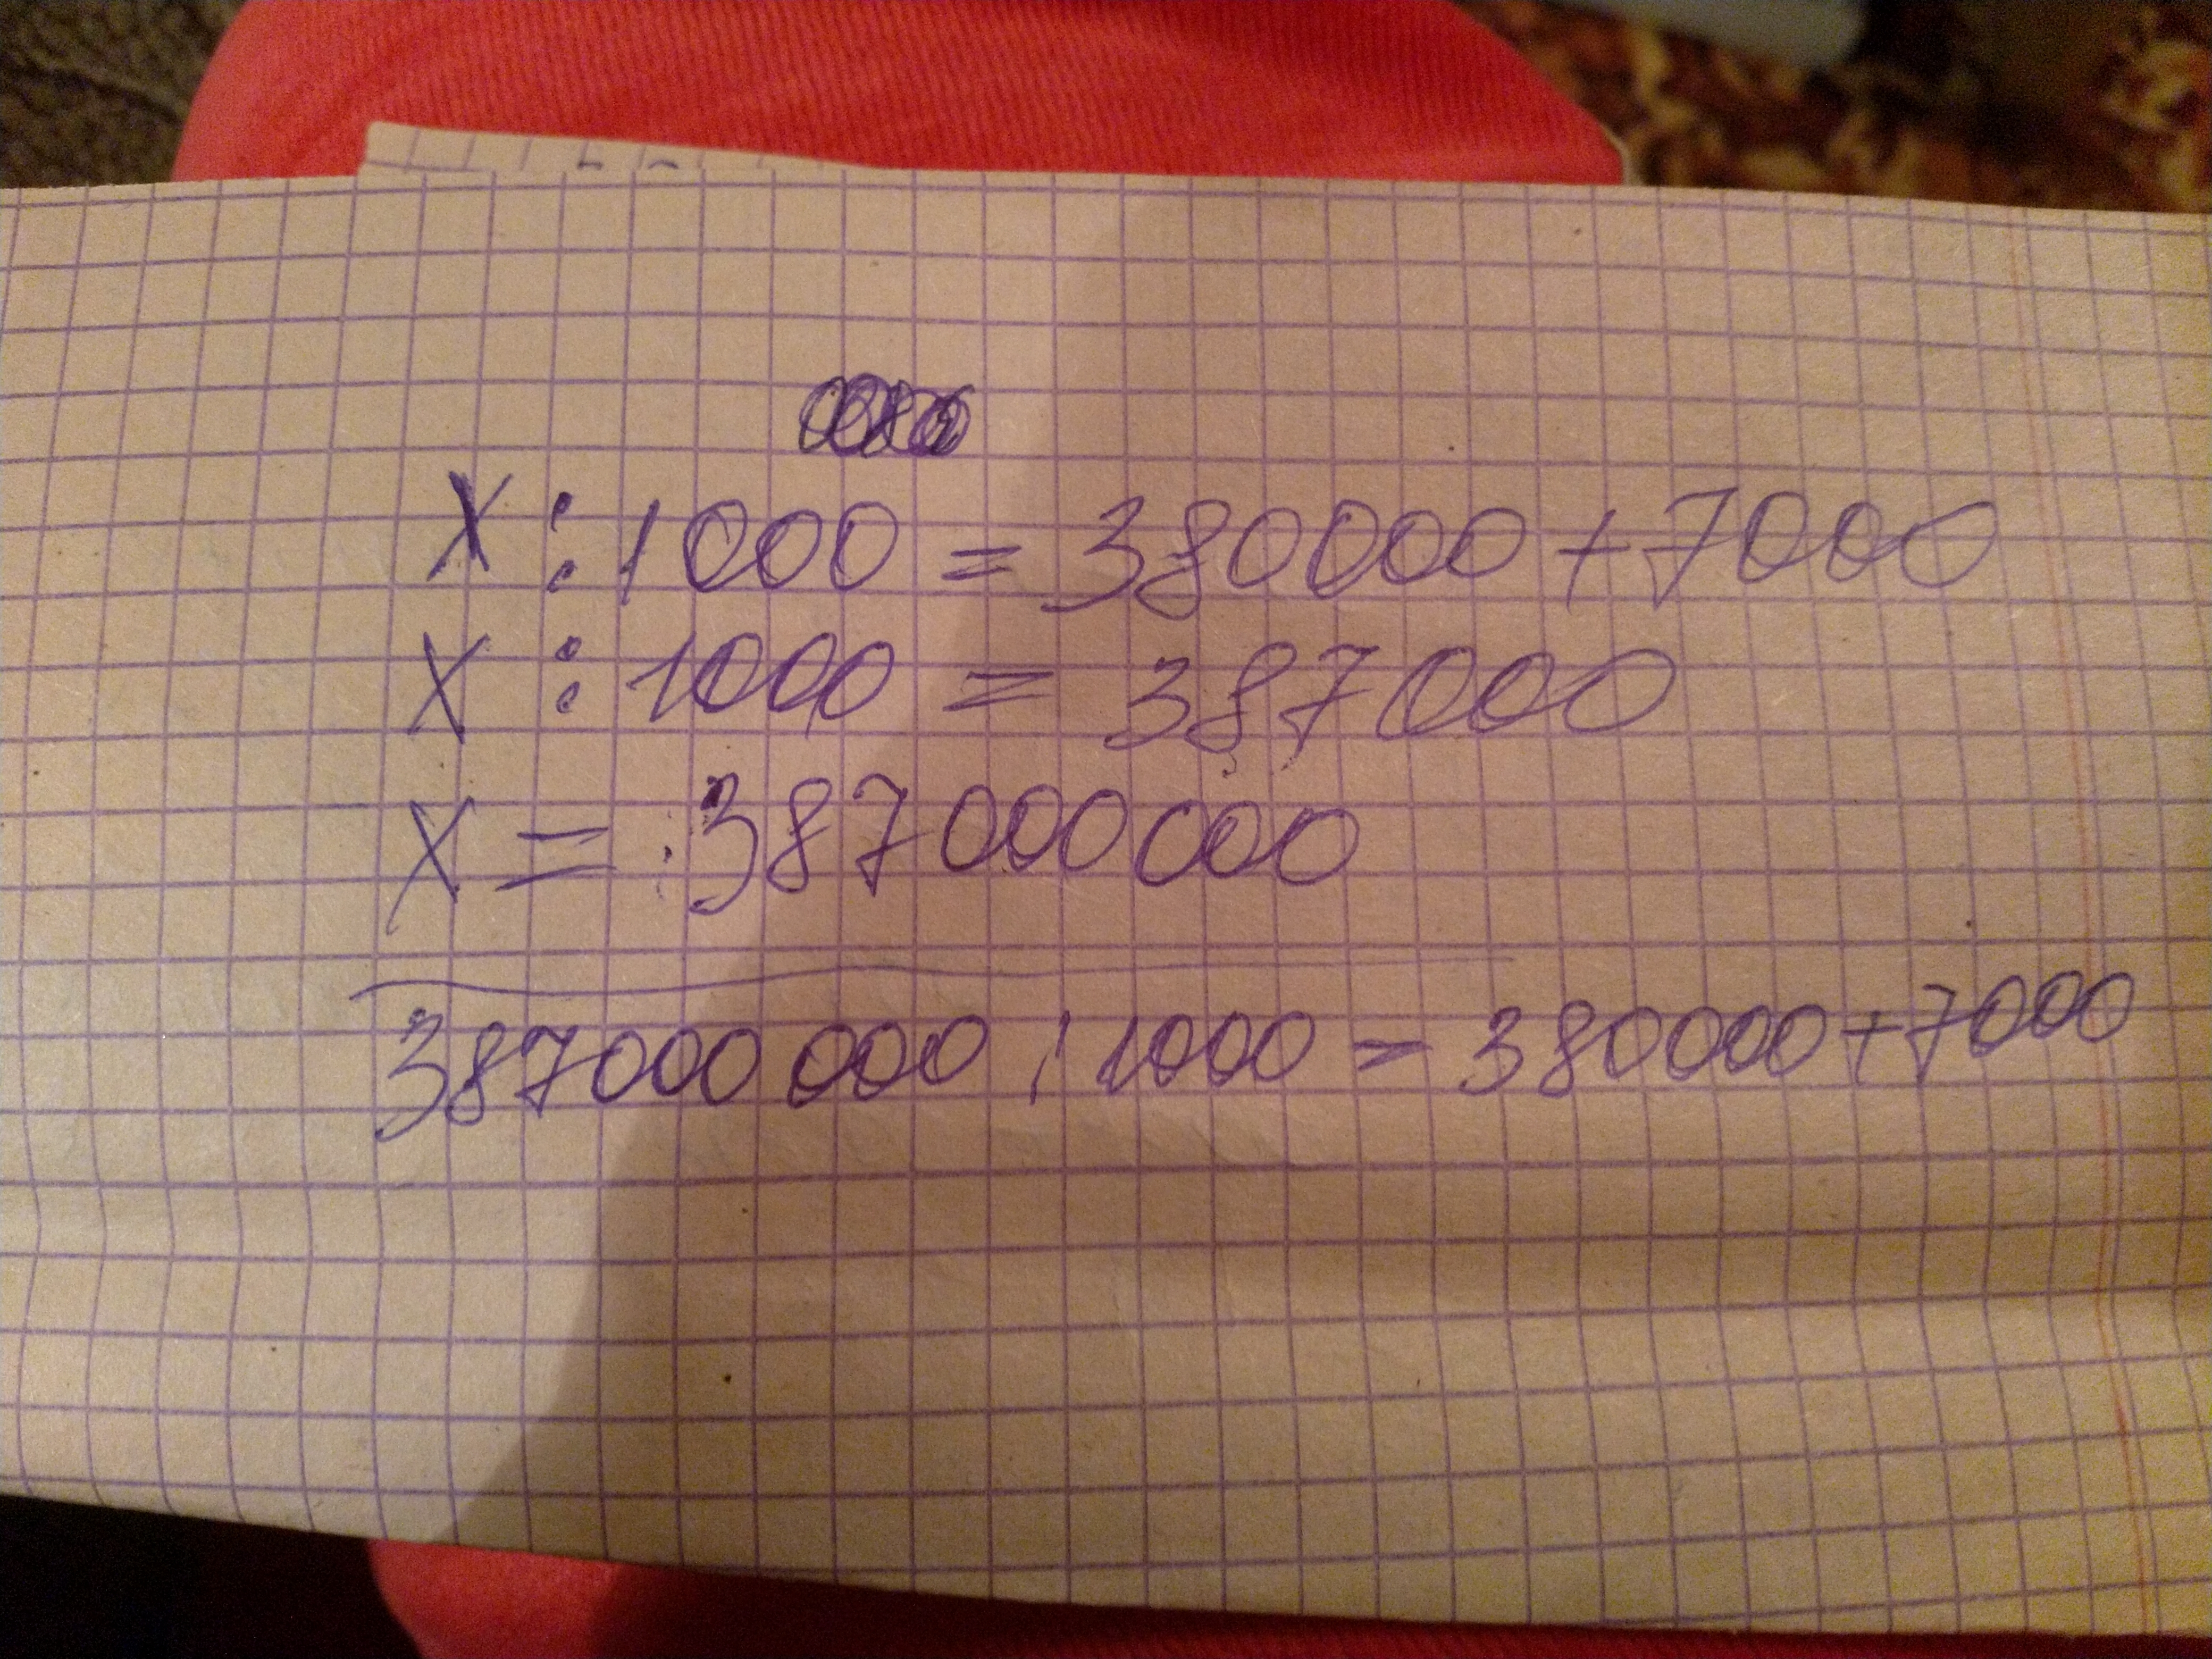 X : 1000 = 380000 + 7000
X : 1000 = 387000
X = 387000000
387000000 : 1000 = 380000 + 7000